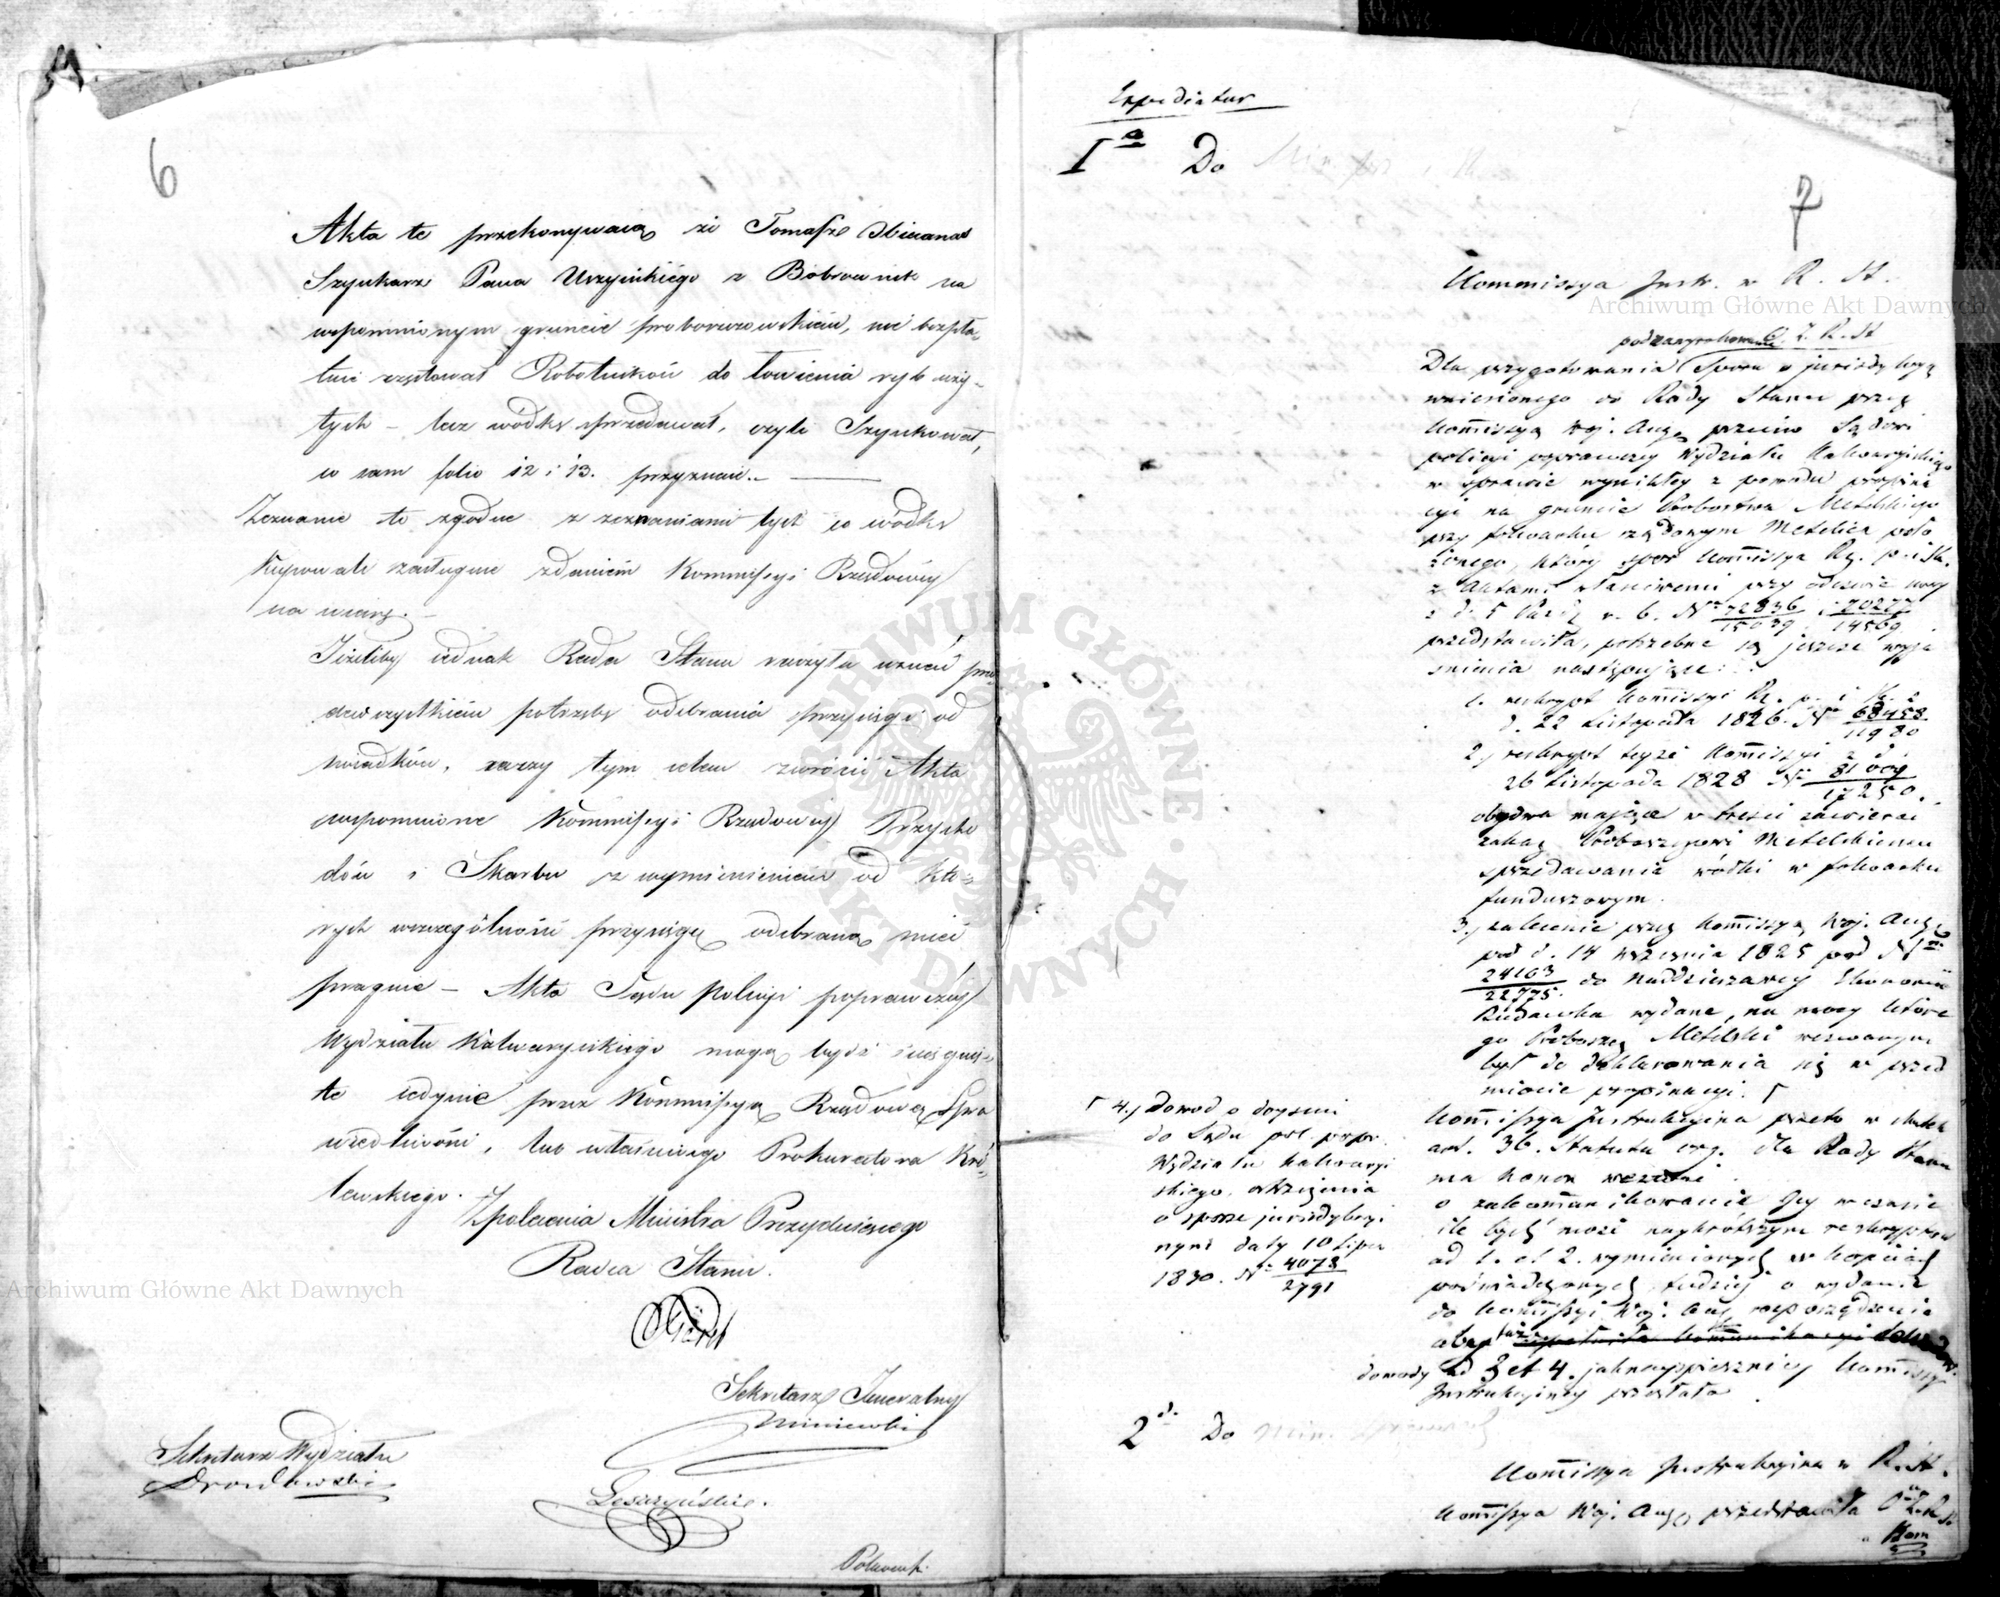 6
Akta te przekonywaią że Tomasz
Szynkarz Pana Uszyńskiego z Bobrownik na
wspomnionym gruncie proboszczowskim, nie bezpła-
tnie częstował Robotników do łowienia ryb uży-
tych – lecz wódkę sprzedawał, czyli Szynkował,
co sam folio 12 i 13. przyznaie. –
Zeznanie to zgodne z zeznaniami tych co wódkę
kupowali zasługuie zdaniem Kommissyi Rządowéy
na wiarę. –
Jeżeliby iednak Rada Stanu raczyła uznać prze-
dewszystkiém potrzebę odebrania przysięgi od
świadków, raczy tym celem zwrócić Akta
wspomnione Kommissyi Rządowéy Przycho
dów i Skarbu z wymienieniem od któ-
rych szczególności przysięgę odebraną mieć
pragnie – Akta Sądu policyi poprawczéy
Wydziału Kalwaryiskiego mogą bydź ściągnię-
te iedynie przez Kommissyą Rządową Spra
wiedliwości, lub właściwego Prokuratora Kró-
lewskiego.
Z polecenia Ministra Prezyduiącego
Radca Stanu.
Sekretarz Jeneralny
Sekretarz Wydziału
Leszczyński.
Expediatur
Iª Do
7
Kommissya Instr. w R. St.
Archiwum Główne Akt Dawnych
Dla przygotowania Sporu o jurisdykcyą
wniesionego do Rady Stanu przez
Kom̄issyą Woj. Aug. przeciw Sądowi
policyi poprawczey Wydziału Kalwaryiskiego
w sprawie wynikłey z powodu propina
cyi na gruncie Probostwa Metelskiego
przy folwarku rządowym Metelica poło
żonego, który spór Kom̄issya Rz. p. i Sk.
z Aktami ściąnionemi przy odezwie swey
z d. 5 Paźd. r. b. Nº 72836/15039 i 70277/14569
przedstawiła, potrzebne są jeszcze wyja
śnienia następujące:
1. reskrypt Kom̄issyi Rz. p. i Sk. z
d. 22 Listopada 1826. Nº 68458/11980
2., reskrypt teyże Kom̄issyi z d.
26 Listopada 1828 Nº 81009/17250.
obydwa mające w treści zawierać
zakaz Proboszczowi Metelskiemu
sprzedawania wódki w folwarku
funduszowym.
3., zalecenie przez Kom̄issyą Woj. Aug.
pod d. 14 Września 1825 pod Nº
24163/22775. do Naddzierżawcy Ekonomii
wydane, na mocy które
go Proboszcz Metelski wezwanym
był do deklarowania się w przed
miocie propinacyi. Γ
Γ 4., Dowod o doyściu
do Sądu pol. popr.
Wydziału Kalwaryi
skiego
o sporze jurisdykcyi
nym daty 10 Lipca
1830. Nº 4073/2791
Kom̄issya Instrukcyina przeto w skutek
art. 36. Statutu org. dla Rady Stanu
ma honor wezwać
o zakom̄unikowanie Jey w czasie
ile być może naykrótszym reskryptów
ad 1. et 2. wymienionych w kopiach
poświadczonych tudzież o wydanie
do Kom̄issyi Woj. Aug. rozporządzenia
aby
dowody ad 3 et 4. jaknayspieszniey Kom̄issyi
Instrukcyiney przesłała
2º Do
Kom̄issya Instrukcyina w R. St.
Kom̄issya Woj. Aug. przedstawiła
Kom
Archiwum Główne Akt Dawnych
ARCHIWUM GŁÓWNE AKT DAWNYCH